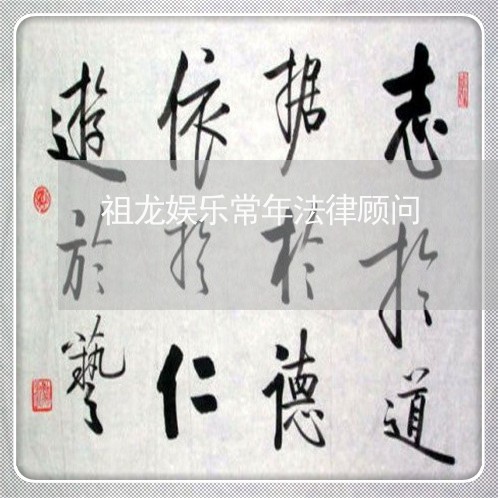 志於道
据於德
依於仁
遊於藝
祖龙娱乐常年法律顾问